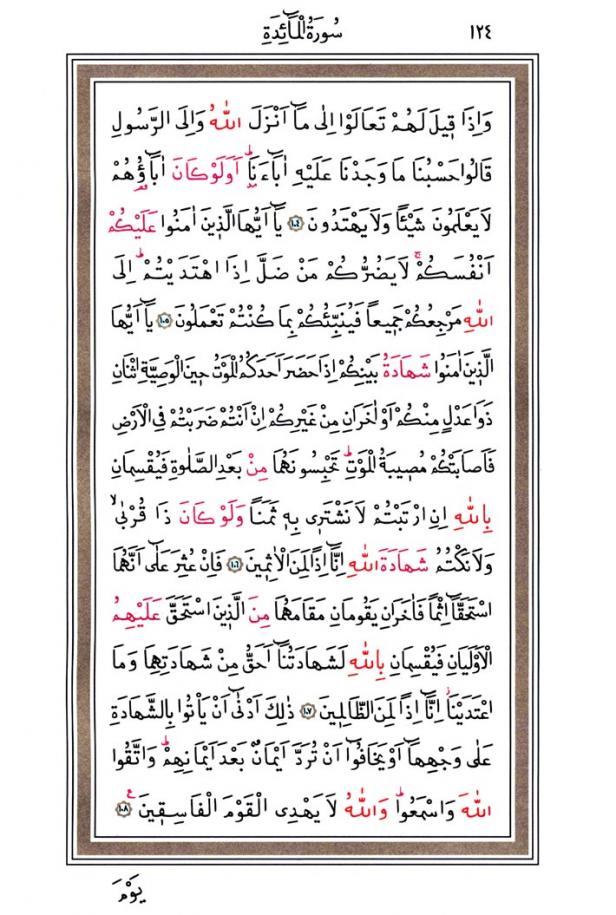 سُورَةُ الْمَائِدَةِ ١٢٤
وَاِذَا ق۪يلَ لَهُمْ تَعَالَوْا اِلٰى مَٓا اَنْزَلَ اللّٰهُ وَاِلَى الرَّسُولِ
قَالُوا حَسْبُنَا مَا وَجَدْنَا عَلَيْهِ اٰبَٓاءَنَاۜ اَوَلَوْ كَانَ اٰبَٓاؤُ۬هُمْ
لَا يَعْلَمُونَ شَيْـًٔا وَلَا يَهْتَدُونَ ﴿١٠٤﴾ يَٓا اَيُّهَا الَّذ۪ينَ اٰمَنُوا عَلَيْكُمْ
اَنْفُسَكُمْۚ لَا يَضُرُّكُمْ مَنْ ضَلَّ اِذَا اهْتَدَيْتُمْۜ اِلَى
اللّٰهِ مَرْجِعُكُمْ جَم۪يعًا فَيُنَبِّئُكُمْ بِمَا كُنْتُمْ تَعْمَلُونَ ﴿١٠٥﴾ يَٓا اَيُّهَا
الَّذ۪ينَ اٰمَنُوا شَهَادَةُ بَيْنِكُمْ اِذَا حَضَرَ اَحَدَكُمُ الْمَوْتُ ح۪ينَ الْوَصِيَّةِ اثْنَانِ
ذَوَا عَدْلٍ مِنْكُمْ اَوْ اٰخَرَانِ مِنْ غَيْرِكُمْ اِنْ اَنْتُمْ ضَرَبْتُمْ فِي الْاَرْضِ
فَاَصَابَتْكُمْ مُص۪يبَةُ الْمَوْتِۜ تَحْبِسُونَهُمَا مِنْ بَعْدِ الصَّلٰوةِ فَيُقْسِمَانِ
بِاللّٰهِ اِنِ ارْتَبْتُمْ لَا نَشْتَر۪ي بِه۪ ثَمَنًا وَلَوْ كَانَ ذَا قُرْبٰىۙ
وَلَا نَكْتُمُ شَهَادَةَ اللّٰهِ اِنَّٓا اِذًا لَمِنَ الْاٰثِم۪ينَ ﴿١٠٦﴾ فَاِنْ عُثِرَ عَلٰٓى اَنَّهُمَا
اسْتَحَقَّٓا اِثْمًا فَاٰخَرَانِ يَقُومَانِ مَقَامَهُمَا مِنَ الَّذ۪ينَ اسْتَحَقَّ عَلَيْهِمُ
الْاَوْلَيَانِ فَيُقْسِمَانِ بِاللّٰهِ لَشَهَادَتُنَٓا اَحَقُّ مِنْ شَهَادَتِهِمَا وَمَا
اعْتَدَيْنَاۘ اِنَّٓا اِذًا لَمِنَ الظَّالِم۪ينَ ﴿١٠٧﴾ ذٰلِكَ اَدْنٰٓى اَنْ يَأْتُوا بِالشَّهَادَةِ
عَلٰى وَجْهِهَٓا اَوْ يَخَافُٓوا اَنْ تُرَدَّ اَيْمَانٌ بَعْدَ اَيْمَانِهِمْۜ وَاتَّقُوا
اللّٰهَ وَاسْمَعُواۜ وَاللّٰهُ لَا يَهْدِي الْقَوْمَ الْفَاسِق۪ينَ۟ ﴿١٠٨﴾
يَوْمَ